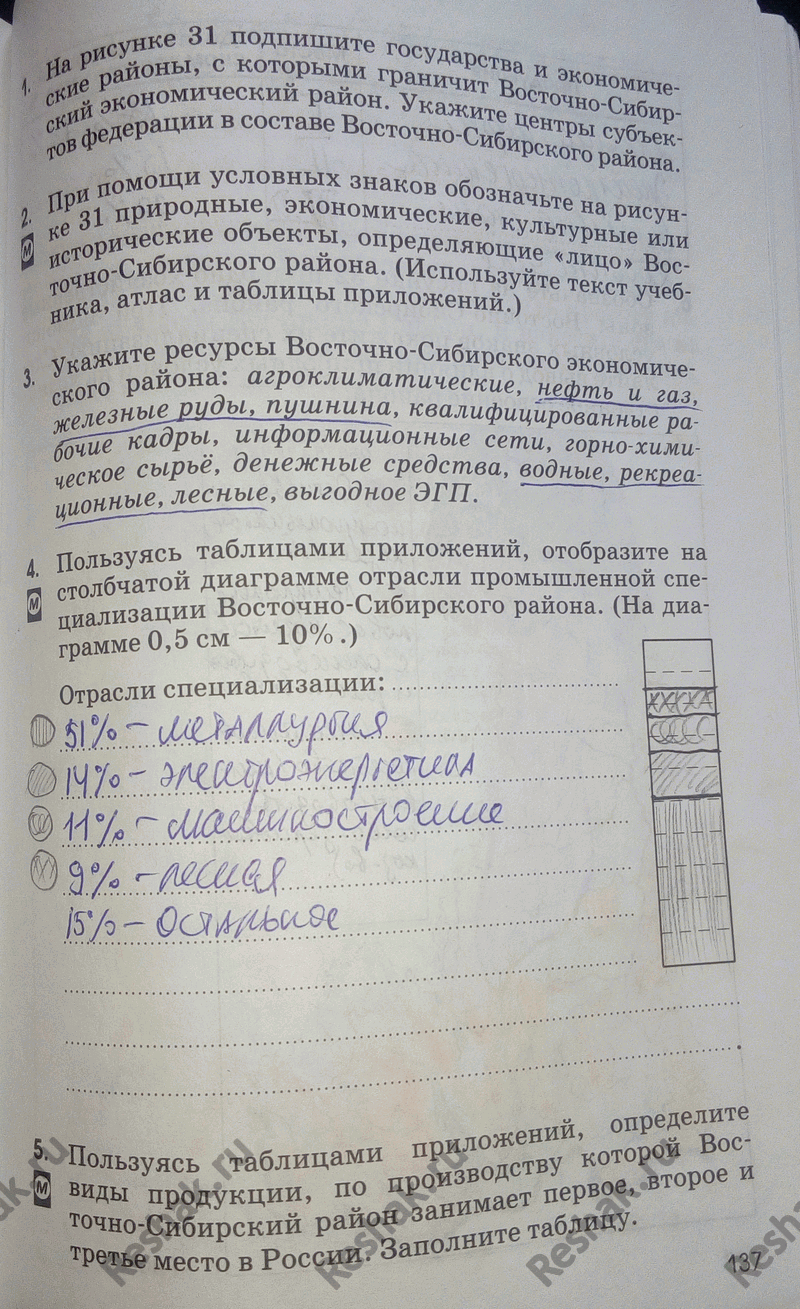 1. На рисунке 31 подпишите государства и экономиче-
ские районы, с которыми граничит Восточно-Сибир-
ский экономический район. Укажите центры субъек-
тов федерации в составе Восточно-Сибирского района.
2. При помощи условных знаков обозначьте на рисун-
М ке 31 природные, экономические, культурные или
исторические объекты, определяющие «лицо» Вос-
точно-Сибирского района. (Используйте текст учеб-
ника, атлас и таблицы приложений.)
3. Укажите ресурсы Восточно-Сибирского экономиче-
ского района: агроклиматические, нефть и газ,
железные руды, пушнина, квалифицированные ра-
бочие кадры, информационные сети, горно-хими-
ческое сырьё, денежные средства, водные, рекреа-
ционные, лесные, выгодное ЭГП.
4. Пользуясь таблицами приложений, отобразите на
М столбчатой диаграмме отрасли промышленной спе-
циализации Восточно-Сибирского района. (На диа-
грамме 0,5 см — 10% .)
Отрасли специализации:
51% – металлургия
14% – электроэнергетика
11% – машиностроение
9% – лесная
15% – остальное
5. Пользуясь таблицами приложений, определите
М виды продукции, по производству которой Вос-
точно-Сибирский район занимает первое, второе и
третье место в России. Заполните таблицу.
137
ak.ru
Reshak.ru
Reshak.ru
Reshak.ru
Resha